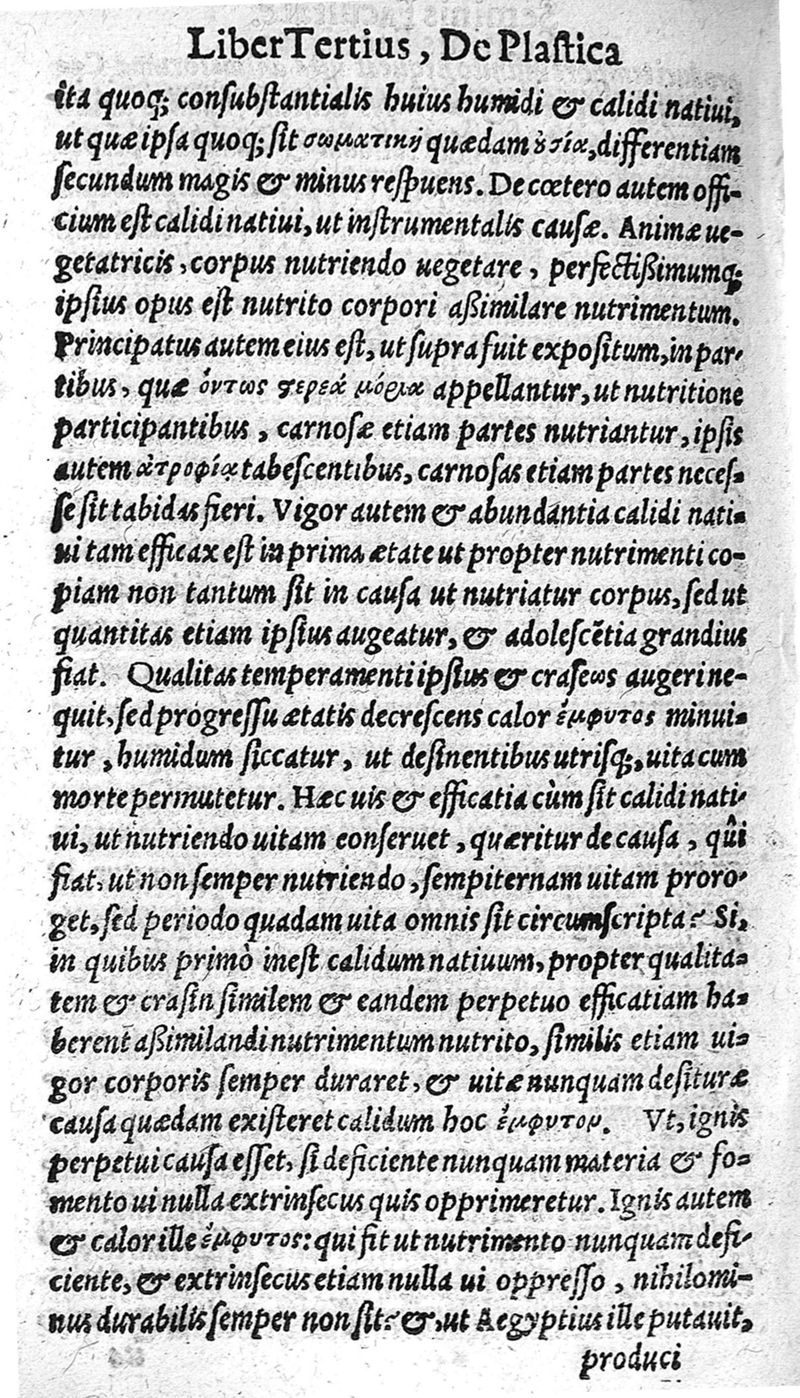 Liber Tertius, De Plastica
ita quoq; consubstantialis huius humidi & calidi natiui,
ut quæ ipsa quoq; sit σωματικὴ quædam ὀσία, differentiam
secundum magis & minus respuens. De cœtero autem offi-
cium est calidi natiui, ut instrumentalis causæ. Animæ ue-
getatricis, corpus nutriendo uegetare, perfectißimumq;
ipsius opus est nutrito corpori aßimilare nutrimentum.
Principatus autem eius est, ut supra fuit expositum, in par-
tibus, quæ ὄντως ϛερεὰ μόρια appellantur, ut nutritione
participantibus, carnosæ etiam partes nutriantur, ipsis
autem ἀτροφίᾳ tabescentibus, carnosas etiam partes neces-
se sit tabidas fieri. Vigor autem & abundantia calidi nati-
ui tam efficax est in prima ætate ut propter nutrimenti co-
piam non tantum sit in causa ut nutriatur corpus, sed ut
quantitas etiam ipsius augeatur, & adolescẽtia grandius
fiat. Qualitas temperamenti ipsius & craseωs augeri ne-
quit, sed progressu ætatis decrescens calor ἔμφυτος minui-
tur, humidum siccatur, ut desinentibus utrisq;, uita cum
morte permutetur. Hæc uis & efficatia cùm sit calidi nati-
ui, ut nutriendo uitam conseruet, quæritur de causa, quî
fiat, ut non semper nutriendo, sempiternam uitam proro-
get, sed periodo quadam uita omnis sit circumscripta? Si,
in quibus primò inest calidum natiuum, propter qualita-
tem & crasin similem & eandem perpetuo efficatiam ha-
berent aßimilandi nutrimentum nutrito, similis etiam ui-
gor corporis semper duraret, & uitæ nunquam desituræ
causa quædam existeret calidum hoc ἔμφυτον. Vt, ignis
perpetui causa esset, si deficiente nunquam materia & fo-
mento ui nulla extrinsecus quis opprimeretur. Ignis autem
& calor ille ἔμφυτος: qui fit ut nutrimento nunquam defi-
ciente, & extrinsecus etiam nulla ui oppresso, nihilomi-
nus durabilis semper non sit? &, ut Aegyptius ille putauit,
produci